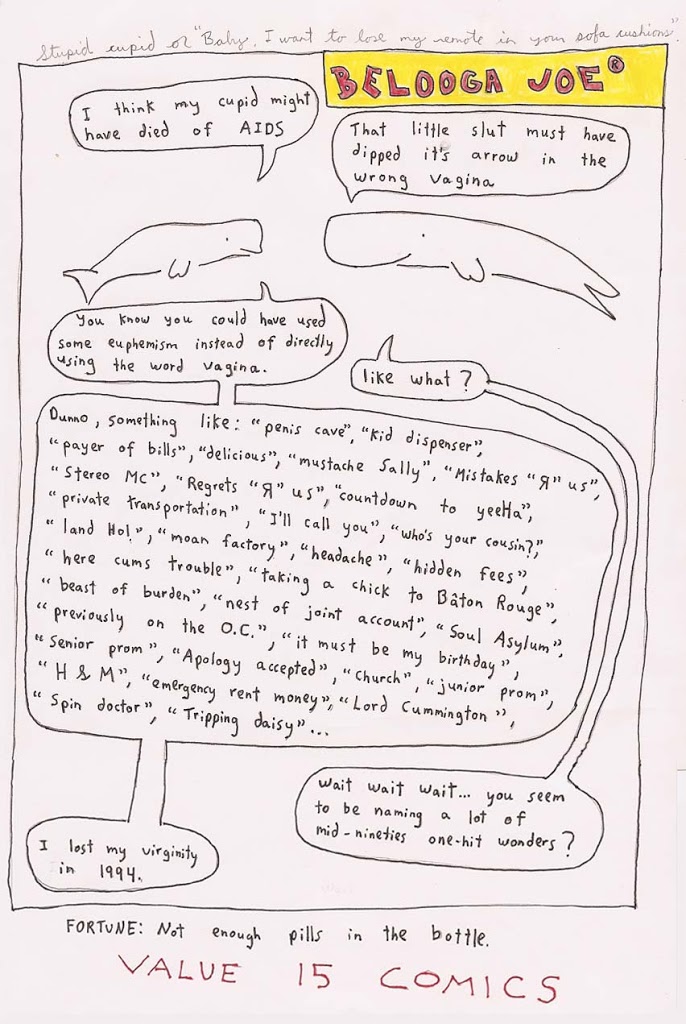 Stupid cupid or "Baby, I want to lose my remote in your sofa cushions."
BELOOGA JOE®
I think my cupid might
have died of AIDS
That little slut must have
dipped it's arrow in the
wrong vagina
You know you could have used
some euphemism instead of directly
using the word vagina.
like what?
Dunno, something like: "penis cave", "kid dispenser",
"payer of bills", "delicious", "mustache Sally", "Mistakes "Я" us",
"Stereo MC", "Regrets "Я" us", "countdown to yeeHa",
"private transportation", "I'll call you", "who's your cousin?",
"land Ho!", "moan factory", "headache", "hidden fees",
"here cums trouble", "taking a chick to Bâton Rouge",
"beast of burden", "nest of joint account", "Soul Asylum",
"previously on the O.C.", "it must be my birthday",
"Senior prom", "Apology accepted", "Church", "junior prom",
"H & M", "emergency rent money", "Lord Cummington",
"Spin doctor", "Tripping daisy"...
Wait wait wait... you seem
to be naming a lot of
mid-nineties one-hit wonders?
I lost my virginity
in 1994.
FORTUNE: Not enough pills in the bottle.
VALUE 15 COMICS